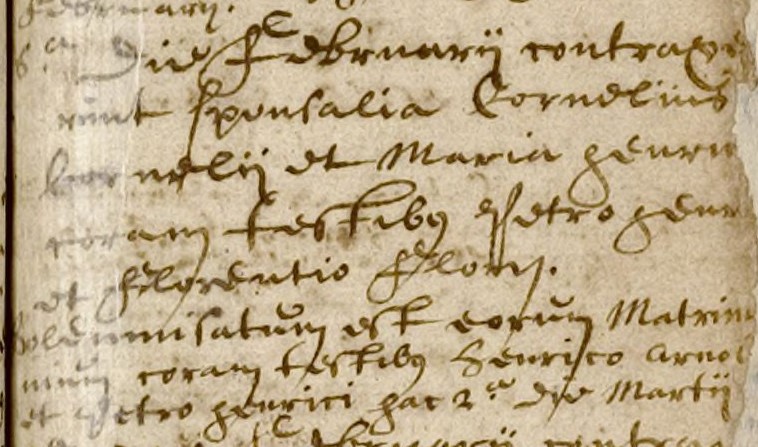 Februarij.
6.a die Februarij contraxe
runt sponsalia Cornelius
Cornelij et Maria henri
coram testibus Petro henr
et Florentio Florij.
Solemnisatum est eorum Matrim
nium coram testibus Henrico Arnol
et Petro henrici hac 2.a die Martij
Februarij contr